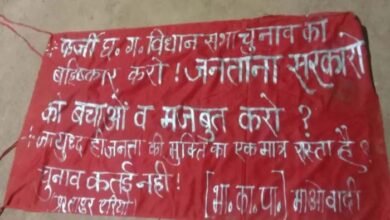 :- फर्जी छ. ग. विधान सभा चुनाव का
बहिष्कार करो ! जनताना सरकारो
को बचाओं व मजबुत करो ?
:- जनयुध्द ही जनता की मुक्ति का एक मात्र रास्ता है ?
चुनाव कतई नही !
एरिया [भा. का. पा.] माओवादी